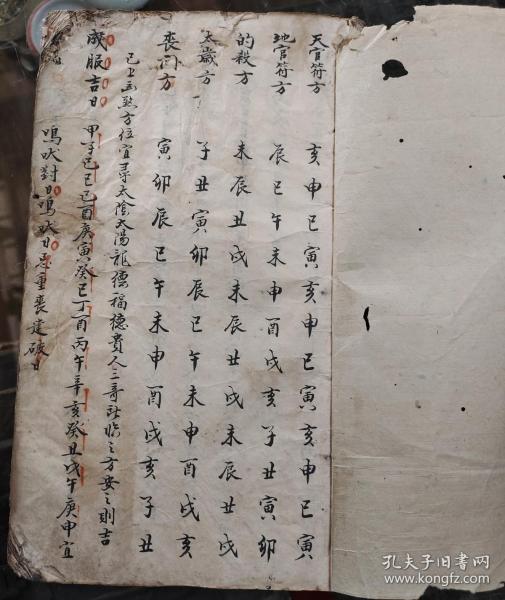 天官符方 亥申巳寅亥申巳寅亥申巳寅
地官符方 辰巳午未申酉戌亥子丑寅卯
的殺方 未辰丑戌未辰丑戌未辰丑戌
太歲方 子丑寅卯辰巳午未申酉戌亥
喪門方 寅卯辰巳午未申酉戌亥子丑
已上 方位宜尋太陰太陽龍德福德貴人三奇 臨之方安之則吉
成服吉日 甲子己巳己酉庚寅癸巳丁酉丙午辛亥癸丑戊午庚申宜
鳴吠對日鳴吠日忌重喪建破日
孔夫子旧书网
www.kongfz.com